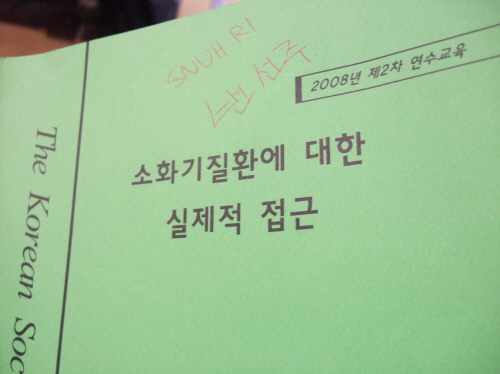 SNUH RI
2008년 제2차 연수교육
소화기질환에 대한
실제적 접근
The Korean Soc